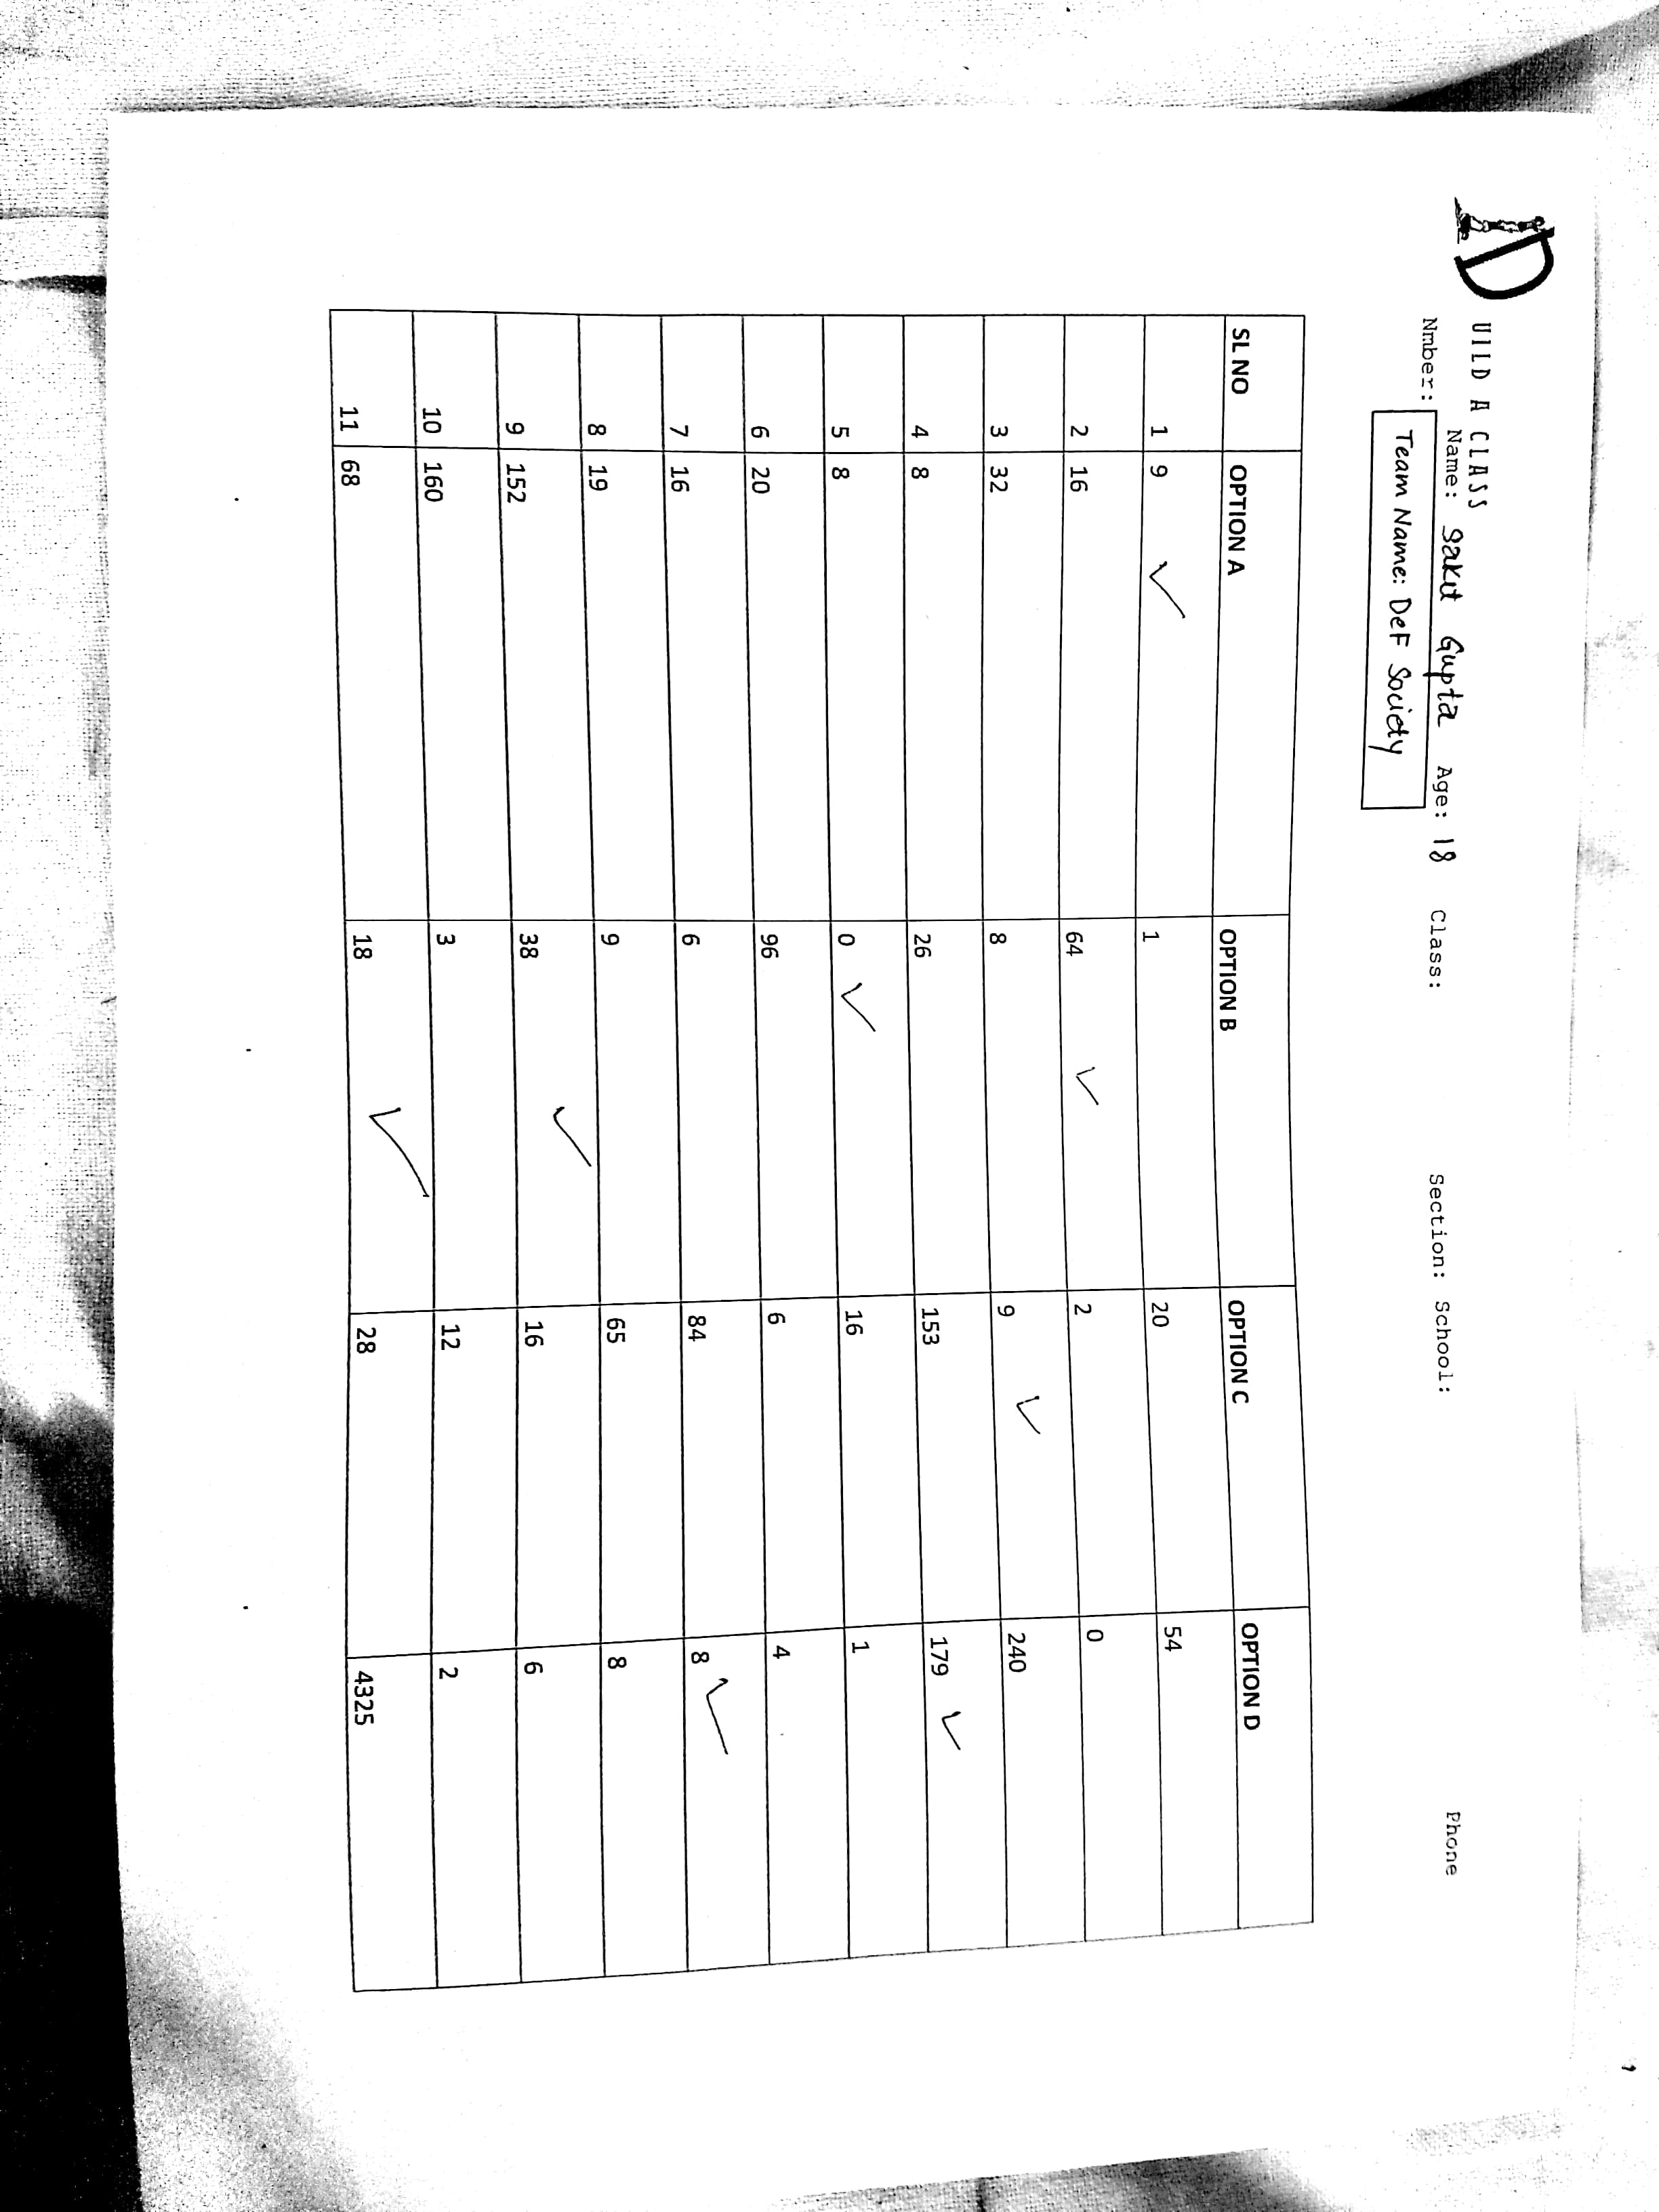 D
UILD A CLASS
Name: Sakit Gupta Age: 18 Class: Section: School: Phone
Nmber:
Team Name: DeF Society
SL NO OPTION A OPTION B OPTION C OPTION D
1 9 ✓ 1 20 54
2 16 64 ✓ 2 0
3 32 8 9 ✓ 240
4 8 26 153 179 ✓
5 8 0 ✓ 16 1
6 20 96 6 4
7 16 6 84 8 ✓
8 19 9 65 8
9 152 38 ✓ 16 6
10 160 3 12 2
11 68 18 ✓ 28 4325